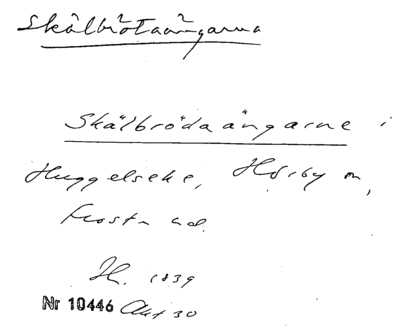 Skälbrötaängarna
Skälbrödaängarne i
Huggelseke, Hörby sn,
Frosta hd.
H. 1839
Nr 10446 Akt 30